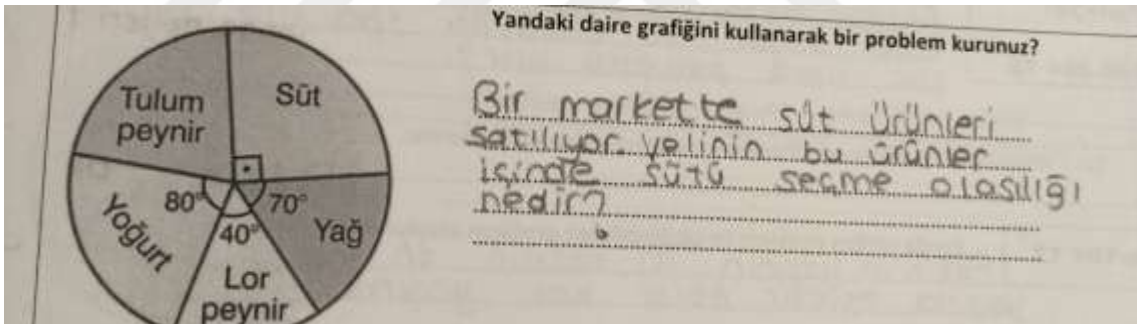 Yandaki daire grafiğini kullanarak bir problem kurunuz?
Tulum
peynir
Süt
80°
70°
40°
Yoğurt
Yağ
Lor
peynir
Bir markette süt ürünleri
satılıyor. velinin bu ürünler
içinde sütü seçme olasılığı
nedir?